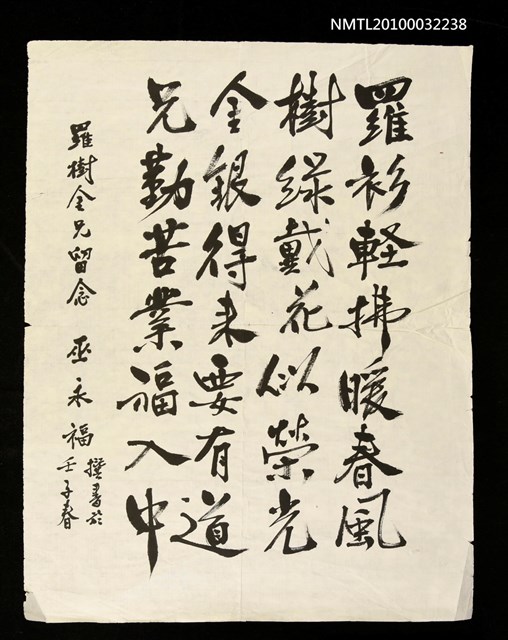 NMTL20100032238
羅衫軽拂暖春風
樹綠戴花似榮光
金銀得来要有道
兄勤苦業福入中
羅樹金兄留念
巫永福
撰書於
壬子春